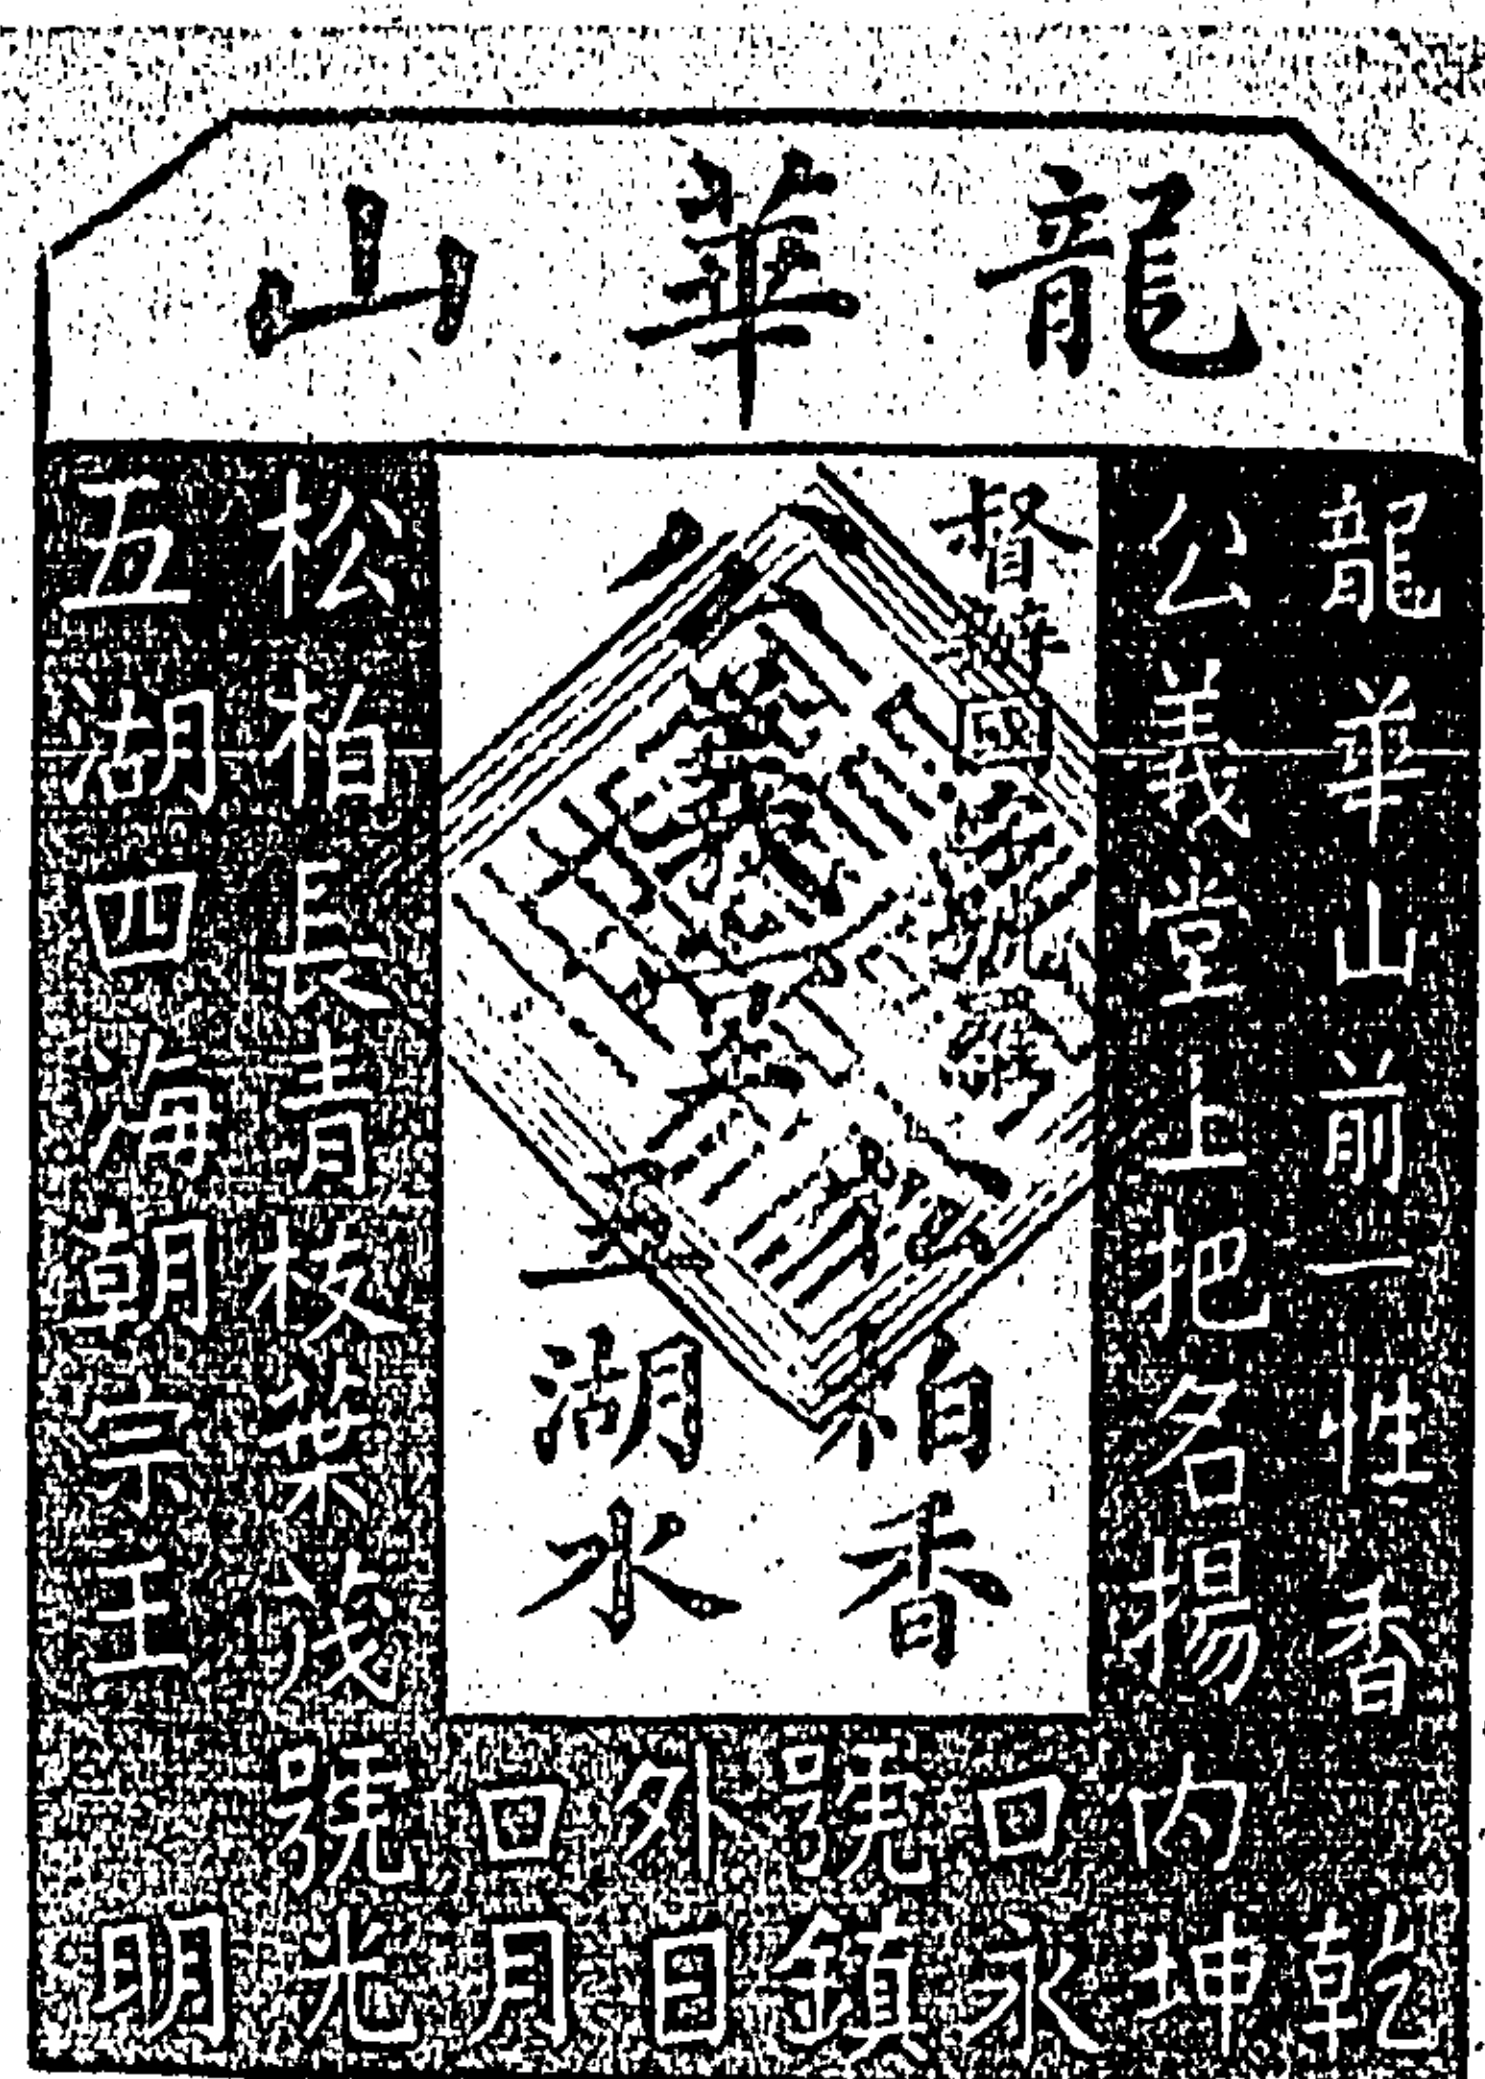 龍華山
龍華山前一性香
公義堂上把名揚
督辦國
義堂
松柏香
五湖水
松柏長青枝葉茂
五湖四海朝宗王
內口號外口號
乾坤永鎮日月光明